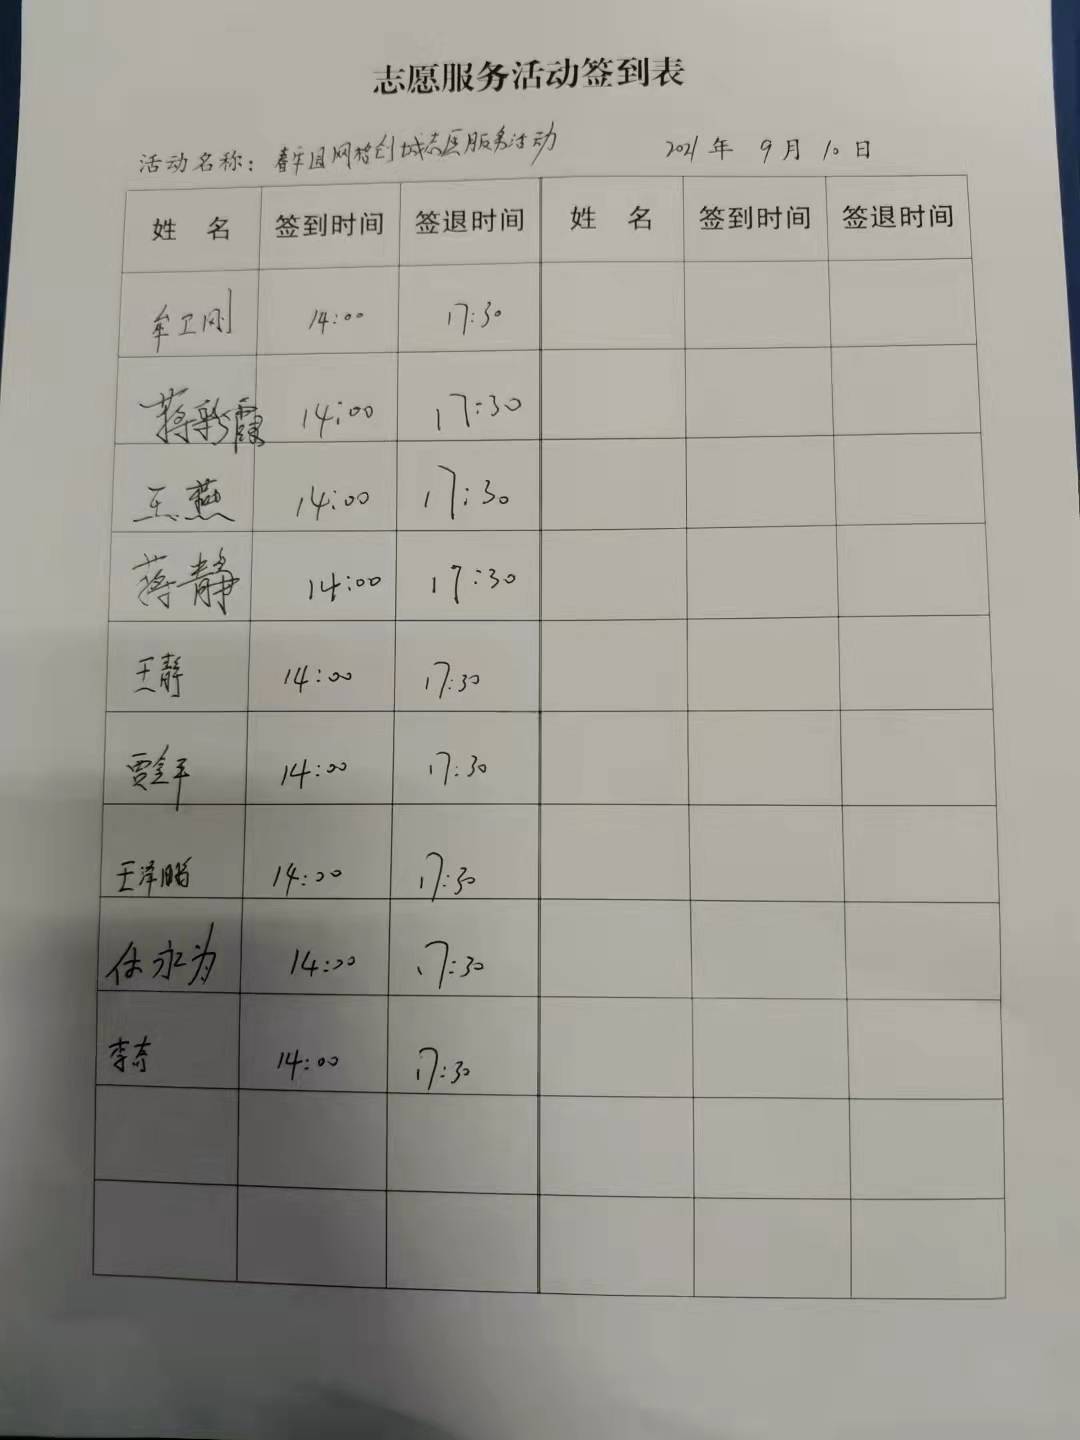 志愿服务活动签到表
活动名称：春华园网格创城志愿服务活动 2021年 9月 10日
姓 名 签到时间 签退时间 姓 名 签到时间 签退时间
牟卫刚 14:00 17:30
蒋彩霞 14:00 17:30
王燕 14:00 17:30
蒋静 14:00 17:30
王静 14:00 17:30
贾金平 14:00 17:30
王泽鹏 14:00 17:30
任永为 14:00 17:30
李奇 14:00 17:30